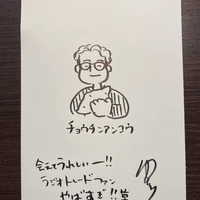 チョウチンアンコウ
会えてうれしいー!!
ラジオトレードファン
やばすぎ!!笑